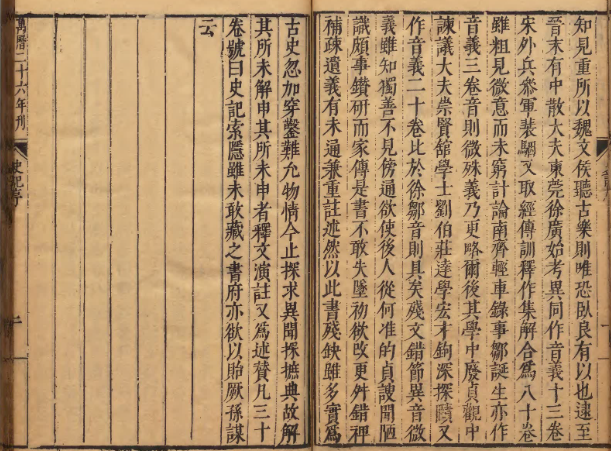 知見重所以魏文侯聽古樂則唯恐臥良有以也逮至
晉末有中散大夫東莞徐廣始考異同作音義十三卷
宋外兵參軍裴駰又取經傳訓釋作集解合爲八十卷
雖粗見微意而未窮討論南齊輕車錄事鄒誕生亦作
音義三卷音則微殊義乃更略爾後其學中廢貞觀中
諫議大夫崇賢舘學士劉伯莊達學宏才鉤深探賾又
作音義二十卷比於徐鄒音則具矣殘文錯節異音微
義雖知獨善不見傍通欲使後人從何准的貞謏聞陋
識頗事鑽研而家傳是書不敢失墜初欲改更舛錯裨
補疎遺義有未通兼重註述然以此書殘缺雖多實爲
古史忽加穿鑿難允物情今止探求異聞採摭典故解
其所未解申其所未申者釋文演註又爲述贊凡三十
卷號曰史記索隱雖未敢藏之書府亦欲以貽厥孫謀
云
萬曆二十六年刊
史記序